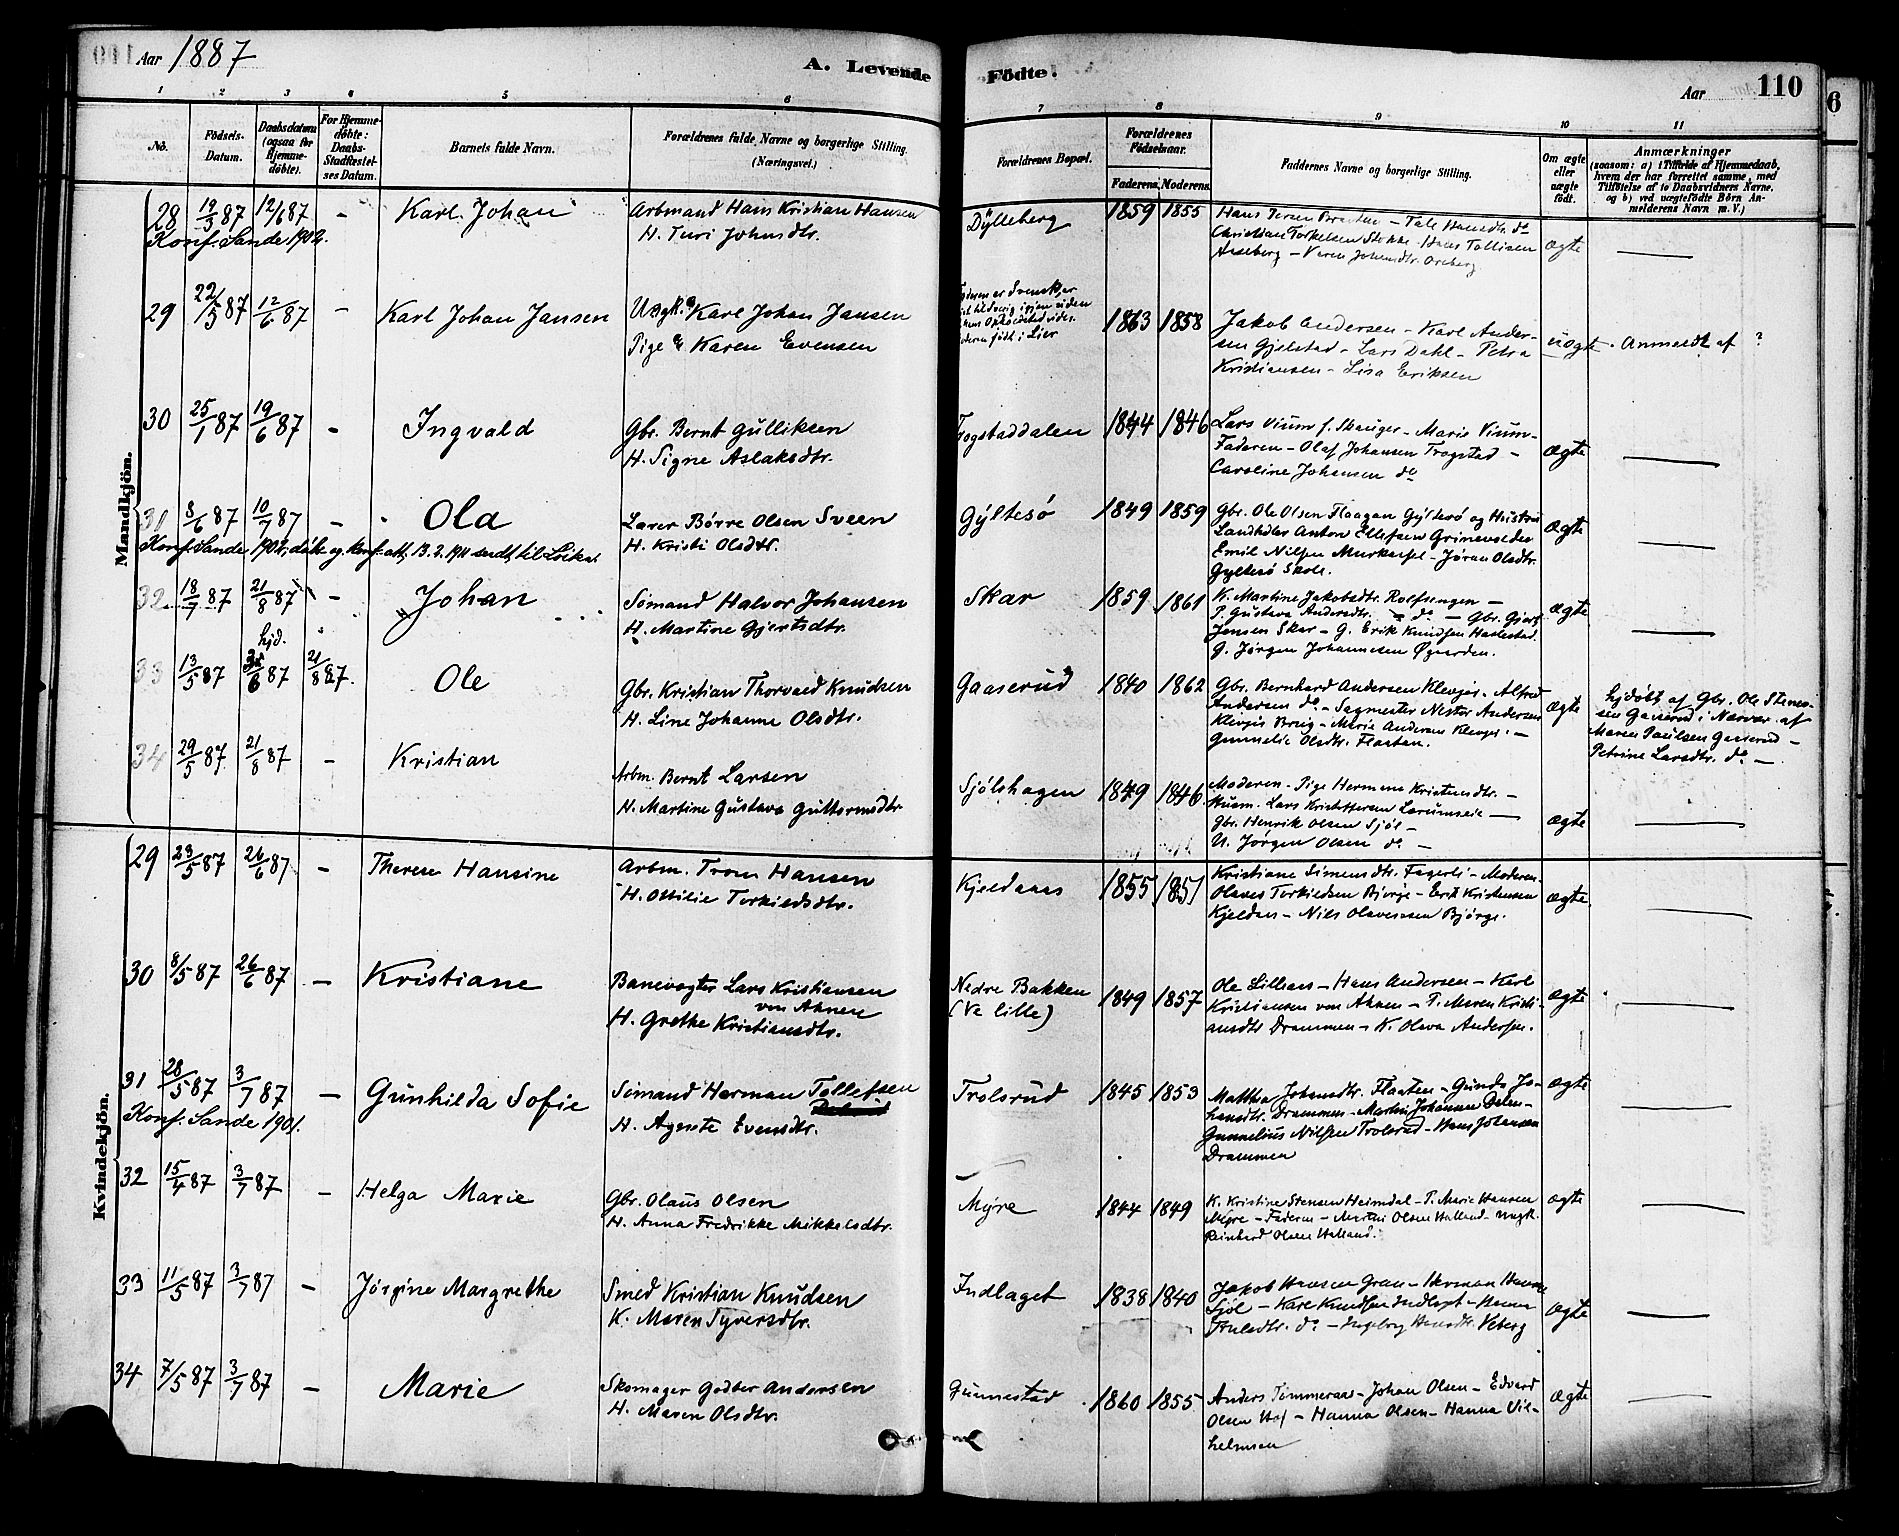 Aar 1887
A. Levende
Födte.
Aar
110
6
1 2 3 4 5 6
7 8 9 10 11
No.
Födsels-
Datum.
Daabsdatum
(ogsaa for
Hjemme-
døbte).
For Hjemme-
døbte:
Daabs-
Stadfæstel-
ses Datum.
Barnets fulde Navn.
Forældrenes fulde Navne og borgerlige Stilling.
(Næringsvei.)
Forældrenes Bopæl.
Forældrenes
Födselsaar.
Faderens. Moderens.
Faddernes Navne og borgerlige Stilling.
Om ægte
eller
uægte
født.
Anmærkninger
(saasom: a) i Tilfælde af Hjemmedaab,
hvem der har forrettet samme, med
Tilföielse af to Daabsvidners Navne,
og b) ved uægtefödte Børn An-
melderens Navn m. V.)
Mandkjön.
28 19/3 87 12/6 87 - Karl Johan Arbmand Hans Kristian Hansen Dÿlleberg 1859 1855
Konf. Sande 1902. H. Turi Johnsdtr.
Christian Torkelsen Stokke - Hans Tollisen ægte
29 22/5 87 12/6 87 - Karl Johan Jansen Ungk. Karl Johan Jansen 1863 1858 Jakob Andersen - Karl Ander-
Pige Karen Evensen sen Gjelstad - Lars Dahl - Petra uægte. Anmeldt af ?
Kristiansen - Lisa Eriksen
30 25/1 87 19/6 87 - Ingvald Gbr. Bernt Gulliksen Fogstaddalen 1844 1846 Lars Vium f. Skauger - Marie Vium -
H. Signe Aslaksdtr. Faderen - Olaf Johansen Trogstad - ægte
Caroline Johansen do
31 8/6 87 10/7 87 - Ola Lærer Børre Olsen Sveen Gÿltesø 1849 1859 Gbr. Ole Olsen Flaagan Gÿltesø og Hustru ægte
Konf. Sande 1902, H. Kristi Olsdtr. Landhdlr Anton Ellefsen Grimsvolden
Emil Nilsen - Jøran Olsdtr.
Gyltesø Skole.
32 18/7 87 21/8 87 - Johan Sömand Halvor Johansen Skar 1859 1861 K. Martine Jakobsdtr. Rolfsengen - ægte
H. Martine Gjertsdtr. P. Gustava Andersdtr. do - Gbr. Gjert
Jensen Skar - G. Erik Knudsen Haslestad
G. Jørgen Johannesen Øgaarden.
hjd.
33 13/5 87 6 87 21/8 87. Ole Gbr. Kristian Thorvald Knudsen Gaaserud 1840 1862 Gbr. Bernhard Andersen Klevjer - Alfred ægte
H. Line Johanne Olsdtr. Andersen do - Sagmester Nestor Andersen
Klevjer Brug - Marie Andersen Klevjer -
Gunnelie Olsdtr. Flaatan.
hjdöbt af Gbr. Ole Stenes-
sen Gaaserud i Nærvær af
Maren Paulsen Gaaserud -
Petrine Larsdtr. do -
34 29/5 87 21/8 87 - Kristian Arbm. Bernt Larsen Sjölshagen 1849 1846 Moderen - Pige Hermine Kristiansdtr. -
H. Martine Gustava Guttormsdtr. Husm. Lars Kristoffersen -
Gbr. Henrik Olsen Sjöl - ægte
U. Jørgen Olsen do -
Kvindekjön.
29 23/5 87 26/6 87 - Therese Hansine Arbm. Trom Hansen Kjeldaas 1855 1851 Kristiane Simensdtr. Fagerli - Moderen -
H. Ottilie Torkildsdtr. Olaves Torkildsen Bjorge - Erik Kristensen ægte.
Kjeldaas - Nils Olavesen Bjørge.
30 8/5 87 26/6 87 - Kristiane Banevogter Lars Kristiansen Nedre Bakken 1849 1857 Ole Lilleaas - Hans Andersen - Karl ægte
von Ahnen (Ve lille) Kristiansen von Ahnen - P. Maren Kristi-
H. Grethe Kristiansdtr. ansdtr Drammen - K. Olava Andersen.
31 28/5 87 3/7 87 - Gunhilda Sofie Sömand Herman Tollefsen Trolsrud 1845 1853 Mathea Johansdtr. Flaaten - Gunda Jo- ægte
Konf. Sande 1901. H. Agnete Evensdtr. hansdtr. Drammen - Martin Johansen Dalen -
Gunnelius Nilsen Trolsrud - Hans Johansen
Drammen
32 15/4 87 3/7 87 - Helga Marie Gbr. Olaus Olsen Mÿre 1844 1849 K. Kristine Stensen Heimdal - P. Marie Hansen ægte
H. Anna Fredrikke Mikkelsdtr. Mÿre - Faderen - Martin Olsen Halland - Ungk.
Reinhard Olsen Halland.
33 11/5 87 3/7 87 - Jörgine Margrethe Smed Kristian Knudsen Indlaget 1838 1840 Jakob Hansen Gran - Herman Hansen
K. Maren Syversdtr. Sjöl - Karl Knudsen Indlaget - Hanna ægte
do - Ingeborg Hansdtr. Veberg
34 7/5 87 3/7 87 - Marie Skomager Godter Andersen Gunnestad 1860 1855 Anders Tömmeraas - Johan Olsen - Edvard ægte
H. Maren Olsdtr. Olsen Hof - Hanna Olsen - Hanna Vil-
helmsen